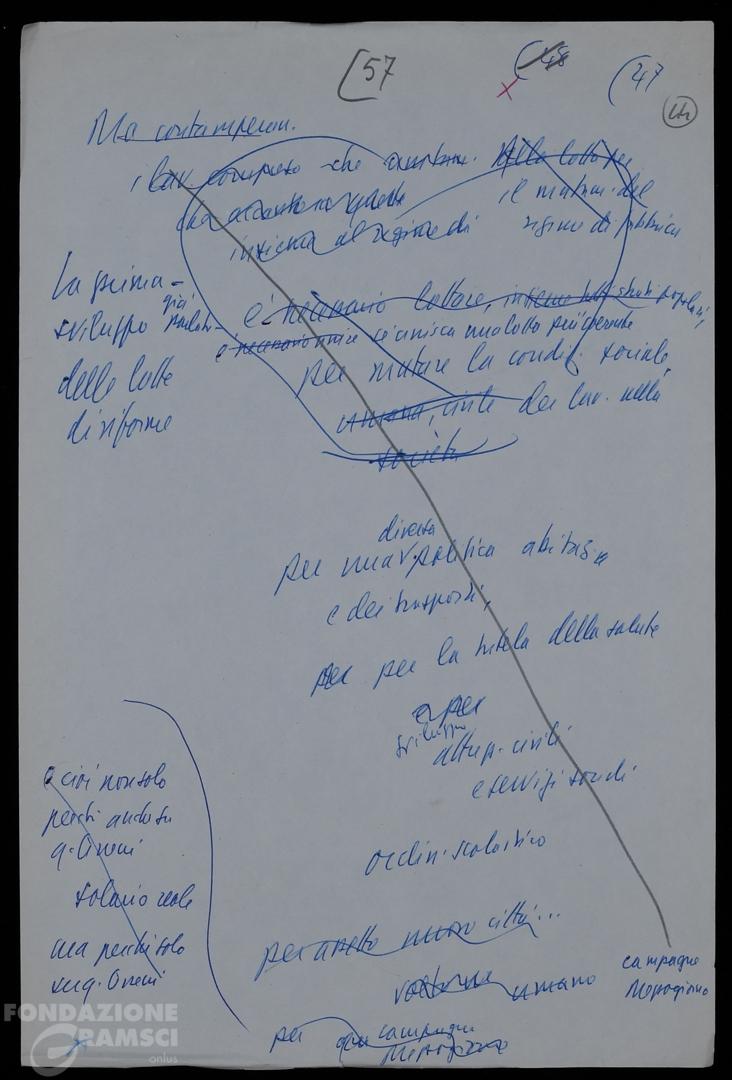 57
48
47
Ma contemperan.
i lav. compreso che
Alla lotta per
ma
il mutam. del
insieme al regime di
regime di fabbrica
La prima -
sviluppo già
delle lotte
di riforme
è necessario lottare, insieme strati popolari,
è necessario unire si unisca una lotta più coerente
per mutare la condiz. sociale
umana, civile dei lav. nella
società
diversa
per una politica abitaz.
e dei trasporti,
per per la tutela della salute
e per
sviluppo
attrezz. civili
e servizi sociali
e cioè non solo
perché anche su
q. terreni
ordin. scolastico
salario reale
ma perché solo
su q. terreni
per assetto nuovo città...
umano
campagne
Mezzogiorno
per campagne
Mezzogiorno
FONDAZIONE
GRAMSCI
onlus